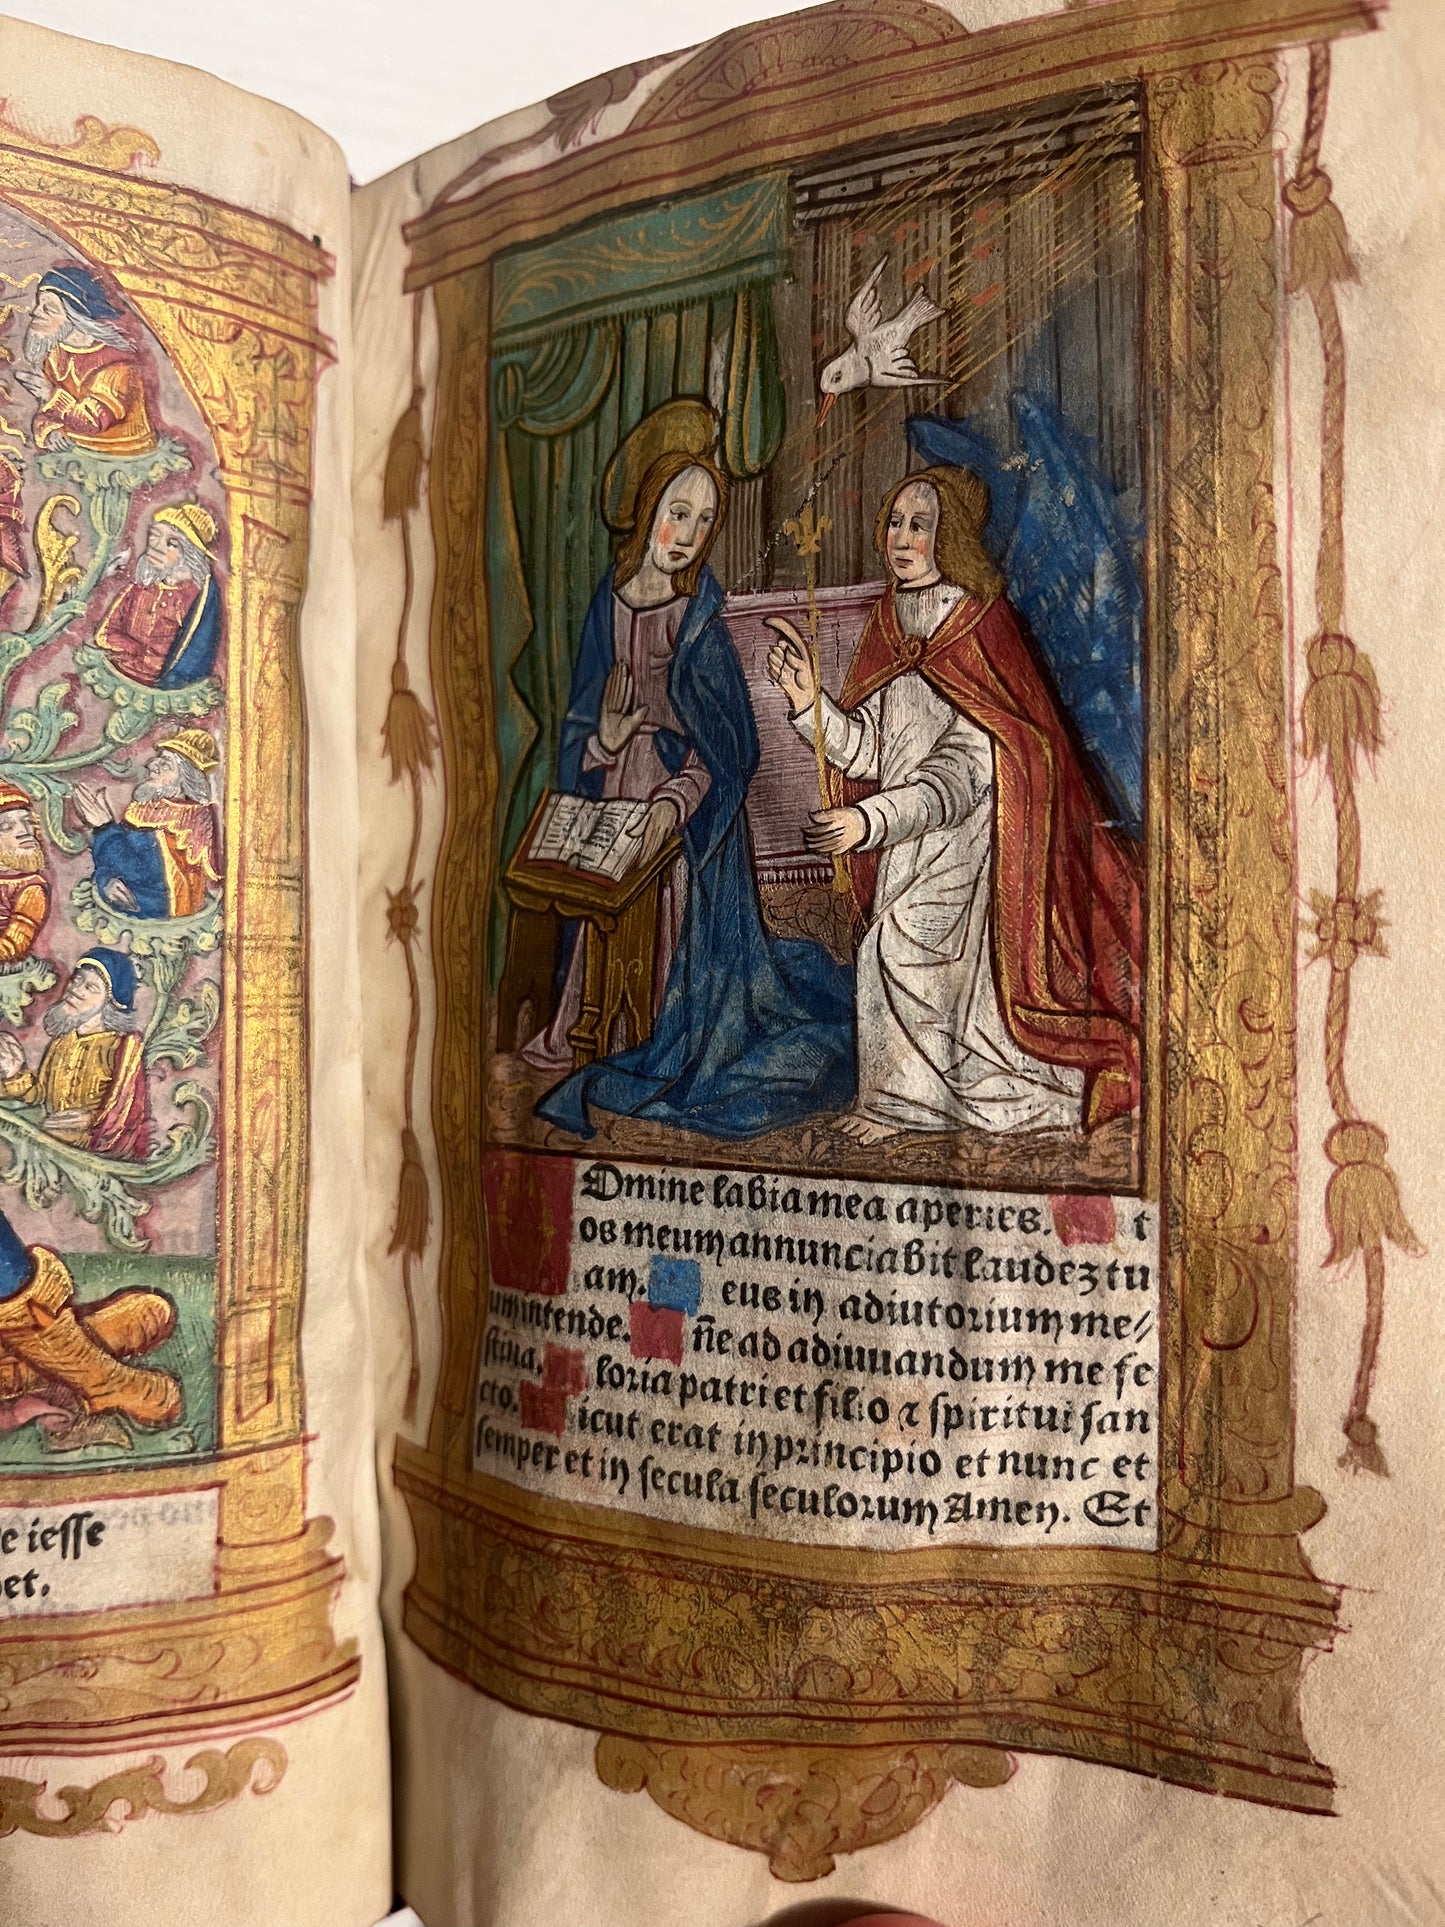 e iesse
et.
Domine labia mea aperies. Et
os meum annunciabit laudez tu
am. Deus in adiutorium me⸗
um intende. Dñe ad adiuuandum me fe
stina. Gloria patri et filio ⁊ spiritui san
cto. Sicut erat in principio et nunc et
semper et in secula seculorum Amen. Et